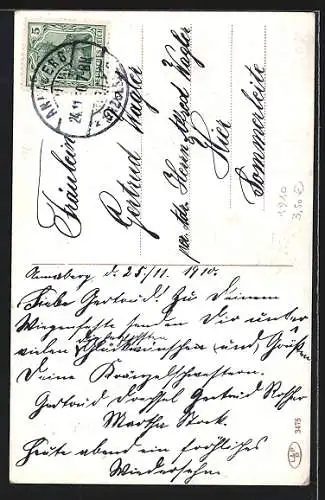 5
ANNABERG
(ERZGEB.)
Fräulein
Gertrud Wagler
per. Adr. Herrn Alfred Wagler
Hier
Sommerleite
1910
3,50 €
Annaberg d. 25/11. 1910.
Liebe Gertrud. Zu Deinem
Wiegenfeste senden Dir unter
vielen Glückwünschen und Grüßen
Deine Kränzelschwestern.
Gertrud Drossel Gertrud
Martha Stock.
Heute abend ein fröhliches
Wiedersehn
3475